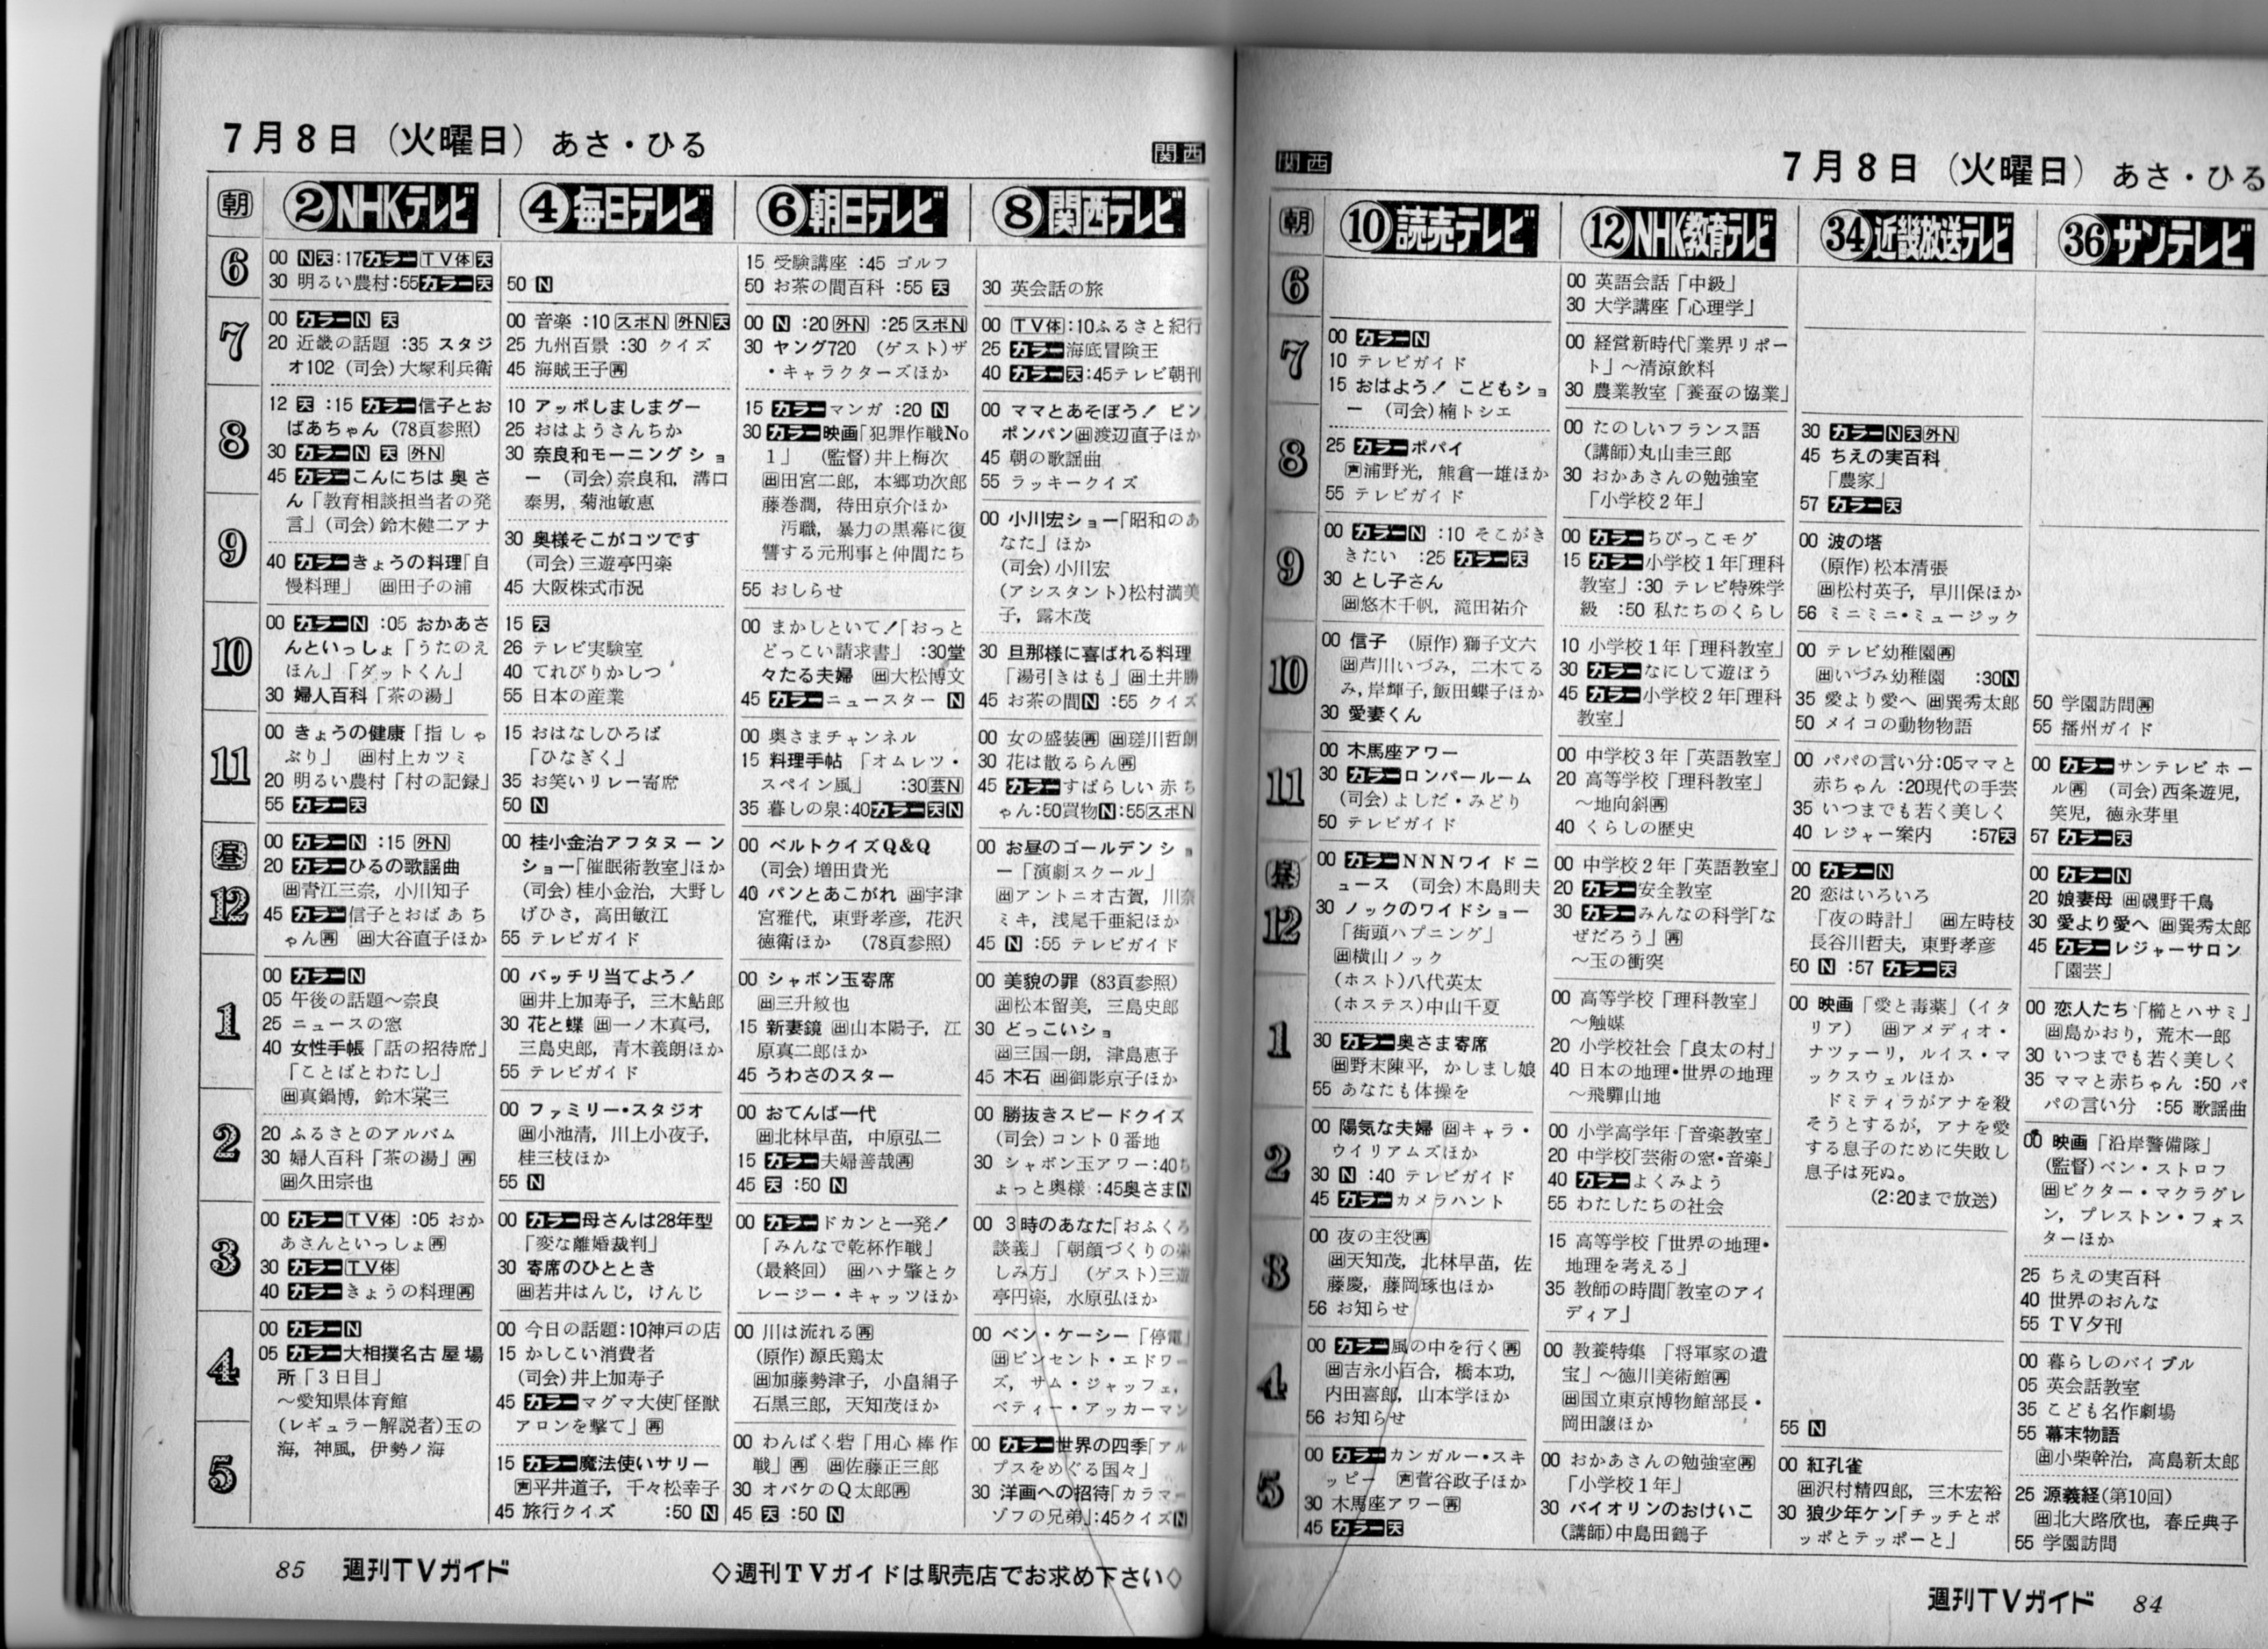 7月8日（火曜日）あさ・ひる
関西
朝
②NHKテレビ
6
00 N天:17カラーTV体天
30 明るい農村:55カラー天
7
00 カラーN 天
20 近畿の話題 :35 スタジ
オ102（司会）大塚利兵衛
8
12 天 :15 カラー信子とお
ばあちゃん（78頁参照）
30 カラーN 天 外N
45 カラーこんにちは奥さ
ん「教育相談担当者の発
言」（司会）鈴木健二アナ
9
40 カラーきょうの料理「自
慢料理」 出田子の浦
10
00 カラーN :05 おかあさ
んといっしょ「うたのえ
ほん」「ダットくん」
30 婦人百科「茶の湯」
11
00 きょうの健康「指しゃ
ぶり」 出村上カツミ
20 明るい農村「村の記録」
55 カラー天
昼
12
00 カラーN :15 外N
20 カラーひるの歌謡曲
出青江三奈，小川知子
45 カラー信子とおばあち
ゃん再 出大谷直子ほか
1
00 カラーN
05 午後の話題～奈良
25 ニュースの窓
40 女性手帳「話の招待席」
「ことばとわたし」
出真鍋博，鈴木棠三
2
20 ふるさとのアルバム
30 婦人百科「茶の湯」再
出久田宗也
3
00 カラーTV体 :05 おか
あさんといっしょ再
30 カラーTV体
40 カラーきょうの料理再
4
00 カラーN
05 カラー大相撲名古屋場
所「3日目」
～愛知県体育館
（レギュラー解説者）玉の
海，神風，伊勢ノ海
5
④毎日テレビ
50 N
00 音楽 :10 スポN 外N天
25 九州百景 :30 クイズ
45 海賊王子再
10 アッポしましまグー
25 おはようさんちか
30 奈良和モーニングショ
ー （司会）奈良和，溝口
泰男，菊池敏恵
30 奥様そこがコツです
（司会）三遊亭円楽
45 大阪株式市況
15 天
26 テレビ実験室
40 てれびりかしつ
55 日本の産業
15 おはなしひろば
「ひなぎく」
35 お笑いリレー寄席
50 N
00 桂小金治アフタヌーン
ショー「催眠術教室」ほか
（司会）桂小金治，大野し
げひさ，高田敏江
55 テレビガイド
00 バッチリ当てよう！
出井上加寿子，三木鮎郎
30 花と蝶 出一ノ木真弓，
三島史郎，青木義朗ほか
55 テレビガイド
00 ファミリー・スタジオ
出小池清，川上小夜子，
桂三枝ほか
55 N
00 カラー母さんは28年型
「変な離婚裁判」
30 寄席のひととき
出若井はんじ，けんじ
00 今日の話題:10神戸の店
15 かしこい消費者
（司会）井上加寿子
45 カラーマグマ大使「怪獣
アロンを撃て」再
15 カラー魔法使いサリー
声平井道子，千々松幸子
45 旅行クイズ :50 N
⑥朝日テレビ
15 受験講座 :45 ゴルフ
50 お茶の間百科 :55 天
00 N :20 外N :25 スポN
30 ヤング720 （ゲスト）ザ
・キャラクターズほか
15 カラーマンガ :20 N
30 カラー映画「犯罪作戦No
1」 （監督）井上梅次
出田宮二郎，本郷功次郎
藤巻潤，待田京介ほか
汚職，暴力の黒幕に復
讐する元刑事と仲間たち
55 おしらせ
00 まかしといて！「おっと
どっこい請求書」 :30堂
々たる夫婦 出大松博文
45 カラーニュースター N
00 奥さまチャンネル
15 料理手帖 「オムレツ・
スペイン風」 :30芸N
35 暮しの泉:40カラー天N
00 ベルトクイズQ&Q
（司会）増田貴光
40 パンとあこがれ 出宇津
宮雅代，東野孝彦，花沢
徳衛ほか （78頁参照）
00 シャボン玉寄席
出三升紋也
15 新妻鏡 出山本陽子，江
原真二郎ほか
45 うわさのスター
00 おてんば一代
出北林早苗，中原弘二
15 カラー夫婦善哉再
45 天 :50 N
00 カラードカンと一発！
「みんなで乾杯作戦」
（最終回） 出ハナ肇とク
レージー・キャッツほか
00 川は流れる再
（原作）源氏鶏太
出加藤勢津子，小畠絹子
石黒三郎，天知茂ほか
00 わんぱく砦「用心棒作
戦」再 出佐藤正三郎
30 オバケのQ太郎再
45 天 :50 N
⑧関西テレビ
30 英会話の旅
00 TV体:10ふるさと紀行
25 カラー海底冒険王
40 カラー天:45テレビ朝刊
00 ママとあそぼう！ ピン
ポンパン出渡辺直子ほか
45 朝の歌謡曲
55 ラッキークイズ
00 小川宏ショー「昭和のあ
なた」ほか
（司会）小川宏
（アシスタント）松村満美
子，露木茂
30 旦那様に喜ばれる料理
「湯引きはも」出土井勝
45 お茶の間N :55 クイズ
00 女の盛装再 出瑳川哲朗
30 花は散るらん再
45 カラーすばらしい赤ち
ゃん:50買物N:55スポN
00 お昼のゴールデンショ
ー「演劇スクール」
出アントニオ古賀，川奈
ミキ，浅尾千亜紀ほか
45 N :55 テレビガイド
00 美貌の罪（83頁参照）
出松本留美，三島史郎
30 どっこいショ
出三国一朗，津島恵子
45 木石 出御影京子ほか
00 勝抜きスピードクイズ
（司会）コント0番地
30 シャボン玉アワー:40ち
ょっと奥様 :45奥さまN
00 3時のあなた「おふくろ
談義」「朝顔づくりの楽
しみ方」 （ゲスト）三遊
亭円楽，水原弘ほか
00 ベン・ケーシー「停電」
出ビンセント・エドワー
ズ，サム・ジャッフェ，
ベティー・アッカーマン
00 カラー世界の四季「アル
プスをめぐる国々」
30 洋画への招待「カラマー
ゾフの兄弟」:45クイズN
85 週刊TVガイド
◇週刊TVガイドは駅売店でお求め下さい◇
関西
7月8日（火曜日）あさ・ひる
朝
⑩読売テレビ
6
7
00 カラーN
10 テレビガイド
15 おはよう！ こどもショ
ー （司会）楠トシエ
8
25 カラーポパイ
声浦野光，熊倉一雄ほか
55 テレビガイド
9
00 カラーN :10 そこがき
きたい :25 カラー天
30 とし子さん
出悠木千帆，滝田祐介
10
00 信子 （原作）獅子文六
出芦川いづみ，二木てる
み，岸輝子，飯田蝶子ほか
30 愛妻くん
11
00 木馬座アワー
30 カラーロンパールーム
（司会）よしだ・みどり
50 テレビガイド
昼
12
00 カラーNNNワイドニ
ュース （司会）木島則夫
30 ノックのワイドショー
「街頭ハプニング」
出横山ノック
（ホスト）八代英太
（ホステス）中山千夏
1
30 カラー奥さま寄席
出野末陳平，かしまし娘
55 あなたも体操を
2
00 陽気な夫婦 出キャラ・
ウイリアムズほか
30 N :40 テレビガイド
45 カラーカメラハント
3
00 夜の主役再
出天知茂，北林早苗，佐
藤慶，藤岡琢也ほか
56 お知らせ
4
00 カラー風の中を行く再
出吉永小百合，橋本功，
内田喜郎，山本学ほか
56 お知らせ
5
00 カラーカンガルー・スキ
ッピー 声菅谷政子ほか
30 木馬座アワー再
45 カラー天
⑫NHK教育テレビ
00 英語会話「中級」
30 大学講座「心理学」
00 経営新時代「業界リポー
ト」～清涼飲料
30 農業教室「養蚕の協業」
00 たのしいフランス語
（講師）丸山圭三郎
30 おかあさんの勉強室
「小学校2年」
00 カラーちびっこモグ
15 カラー小学校1年「理科
教室」:30 テレビ特殊学
級 :50 私たちのくらし
10 小学校1年「理科教室」
30 カラーなにして遊ぼう
45 カラー小学校2年「理科
教室」
00 中学校3年「英語教室」
20 高等学校「理科教室」
～地向斜再
40 くらしの歴史
00 中学校2年「英語教室」
20 カラー安全教室
30 カラーみんなの科学「な
ぜだろう」再
～玉の衝突
00 高等学校「理科教室」
～触媒
20 小学校社会「良太の村」
40 日本の地理・世界の地理
～飛騨山地
00 小学高学年「音楽教室」
20 中学校「芸術の窓・音楽」
40 カラーよくみよう
55 わたしたちの社会
15 高等学校「世界の地理・
地理を考える」
35 教師の時間「教室のアイ
ディア」
00 教養特集 「将軍家の遺
宝」～徳川美術館再
出国立東京博物館部長・
岡田譲ほか
00 おかあさんの勉強室再
「小学校1年」
30 バイオリンのおけいこ
（講師）中島田鶴子
㉞近畿放送テレビ
30 カラーN天外N
45 ちえの実百科
「農家」
57 カラー天
00 波の塔
（原作）松本清張
出松村英子，早川保ほか
56 ミニミニ・ミュージック
00 テレビ幼稚園再
出いづみ幼稚園 :30N
35 愛より愛へ 出巽秀太郎
50 メイコの動物物語
00 パパの言い分:05ママと
赤ちゃん :20現代の手芸
35 いつまでも若く美しく
40 レジャー案内 :57天
00 カラーN
20 恋はいろいろ
「夜の時計」 出左時枝
長谷川哲夫，東野孝彦
50 N :57 カラー天
00 映画「愛と毒薬」（イタ
リア） 出アメディオ・
ナツァーリ，ルイス・マ
ックスウェルほか
ドミティラがアナを殺
そうとするが，アナを愛
する息子のために失敗し
息子は死ぬ。
（2:20まで放送）
55 N
00 紅孔雀
出沢村精四郎，三木宏裕
30 狼少年ケン「チッチとポ
ッポとテッポーと」
㊱サンテレビ
50 学園訪問再
55 播州ガイド
00 カラーサンテレビホー
ル再 （司会）西条遊児，
笑児，徳永芽里
57 カラー天
00 カラーN
20 娘妻母 出磯野千鳥
30 愛より愛へ 出巽秀太郎
45 カラーレジャーサロン
「園芸」
00 恋人たち「櫛とハサミ」
出島かおり，荒木一郎
30 いつまでも若く美しく
35 ママと赤ちゃん :50 パ
パの言い分 :55 歌謡曲
00 映画「沿岸警備隊」
（監督）ベン・ストロフ
出ビクター・マクラグレ
ン，プレストン・フォス
ターほか
25 ちえの実百科
40 世界のおんな
55 TV夕刊
00 暮らしのバイブル
05 英会話教室
35 こども名作劇場
55 幕末物語
出小柴幹治，高島新太郎
25 源義経（第10回）
出北大路欣也，春丘典子
55 学園訪問
週刊TVガイド 84